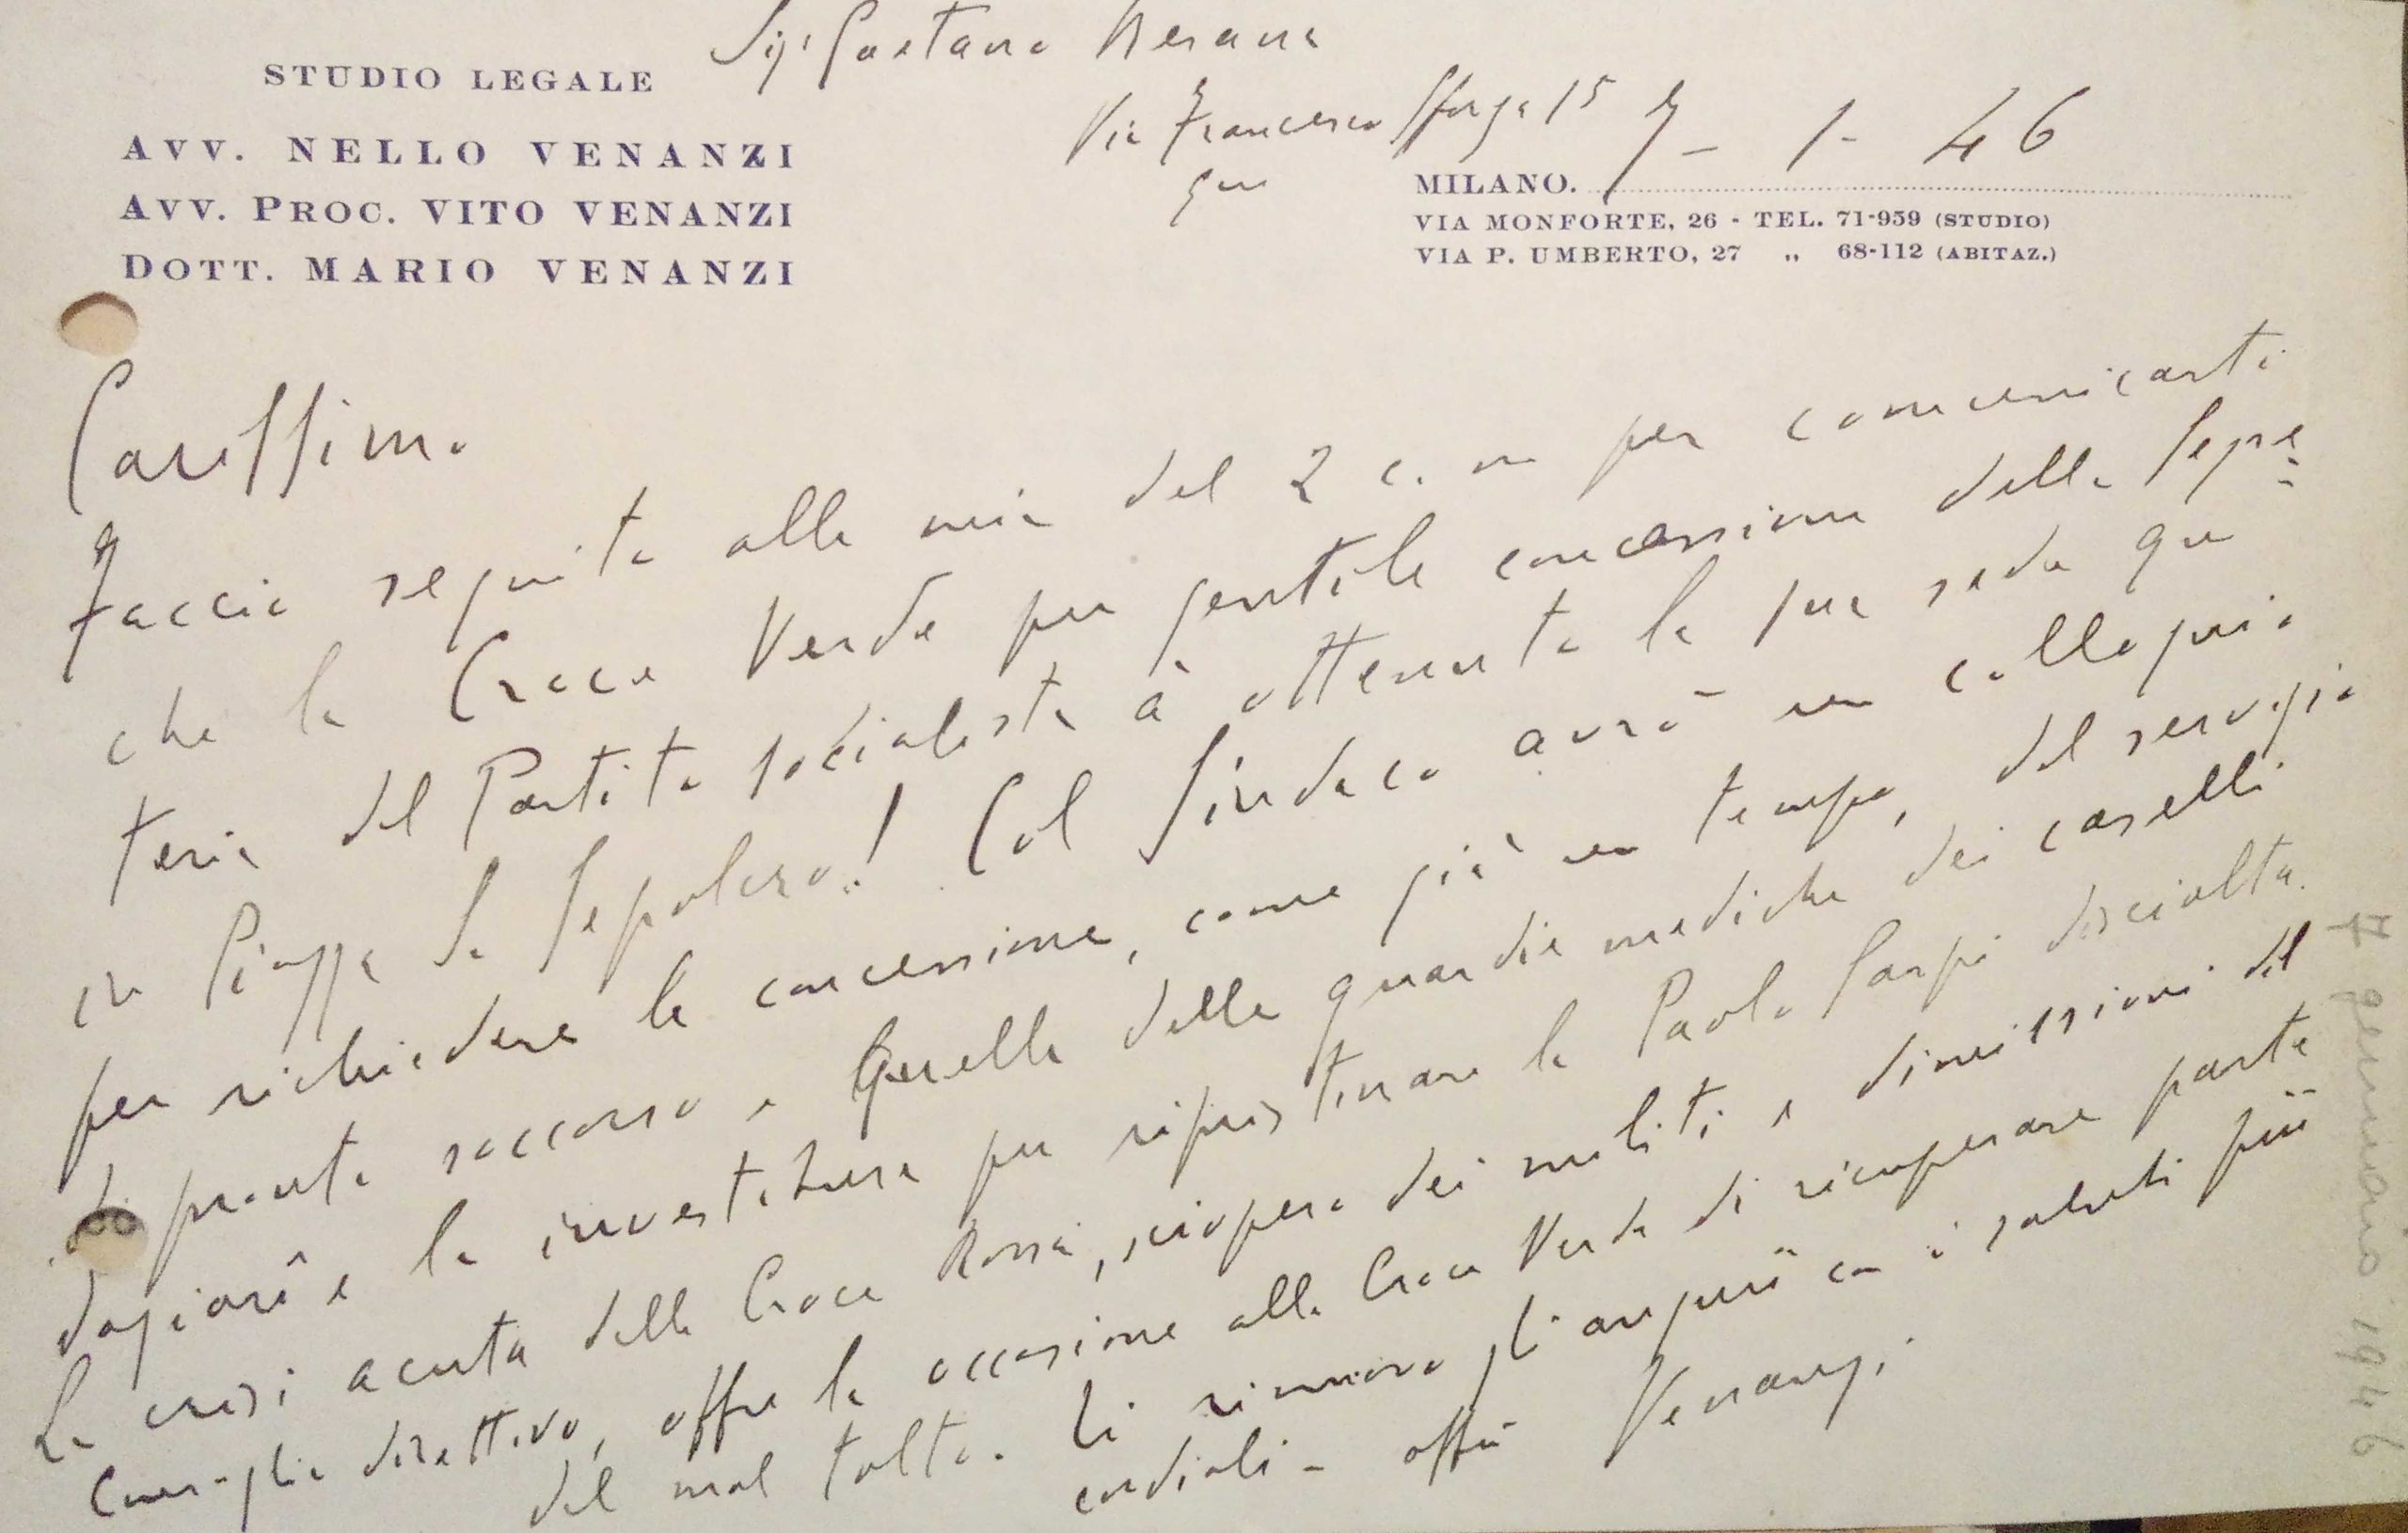 Sig. Gaetano Merana
STUDIO LEGALE
Via Francesco Sforza 15
7 - 1 - 46
AVV. NELLO VENANZI
MILANO.
AVV. PROC. VITO VENANZI
VIA MONFORTE, 26 - TEL. 71-959 (STUDIO)
DOTT. MARIO VENANZI
VIA P. UMBERTO, 27 „ 68-112 (ABITAZ.)
Carissimo
Faccio seguito alla mia del 2 c. m per comunicarti
che la Croce Verde per gentile concessione della Segre=
teria del Partito socialista à ottenuto la sua sede
in Piazza S. Sepolcro! Col Sindaco avrò un colloquio
per richiedere la concessione, come già un tempo, del servizio
di pronto soccorso e quella delle guardie mediche dei caselli
daziarî e la investitura per ripristinare la Paolo Sarpi disciolta.
La crisi acuta della Croce Rossa, sciopero dei militi e dimissioni del
Consiglio direttivo, offre la occasione alla Croce Verde di ricuperare parte
del mal tolto. Ti rinnovo gli auguri con i saluti più
cordiali - aff.mo Venanzi
7 gennaio 1946